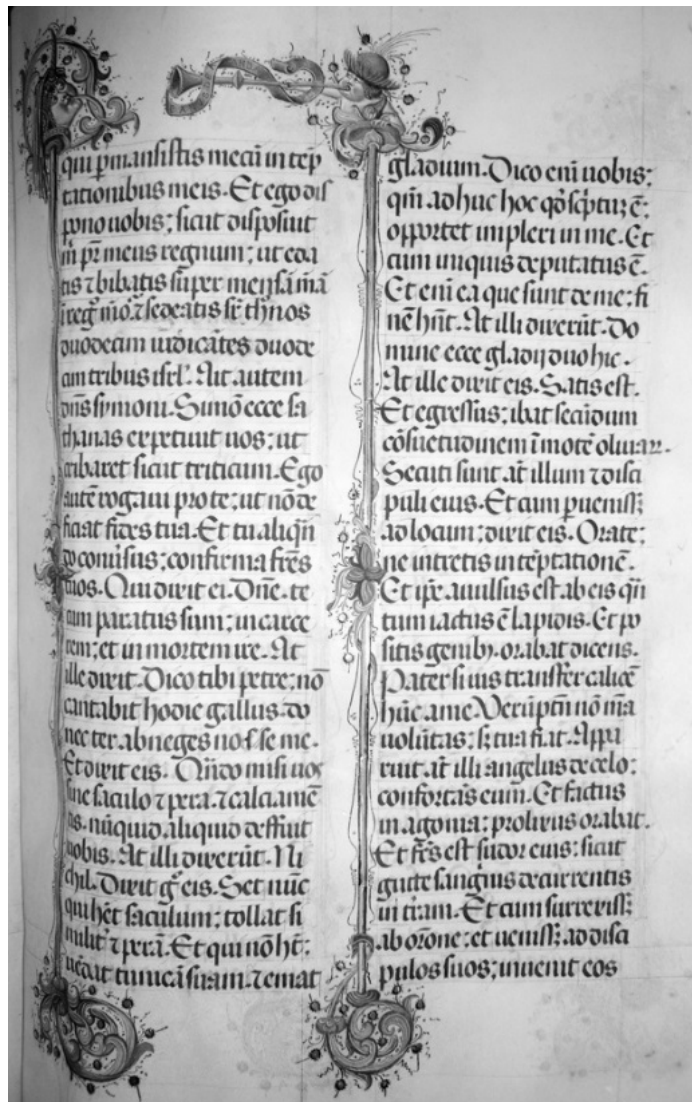 qui ꝑmansistis mecū in tēp
tationibus meis. Et ego dis
pono uobis; sicut disposuit
m̄ pr̄ meus regnum; ut eda
tis ⁊ bibatis super mensā meā
ī regō mō. ⁊ sedeatis sr̄ thr̄nos
duodecim iudicātes duode
cim tribus isrl̄. Ait autem
dn̄s symoni. Simō ecce sa
thanas expetiuit uos; ut
cribaret sicut triticum. Ego
autē rogaui pro te; ut nō de
ficiat fides tua. Et tu aliqn̄
do conūsus; confirma fr̄es
tuos. Qui dixit ei. Dn̄e. te
cum paratus sum; in carce
rem; et in mortem ire. At
ille dixit. Dico tibi petre; nō
cantabit hodie gallus. do
nec ter abneges nosse me.
Et dixit eis. Qn̄do misi uos
sine sacculo ⁊ pera. ⁊ calciamē
tis. nūquid aliquid deffuit
uobis. At illi dixerūt. Ni
chil. Dixit gͦ eis. Set nūc
qui hēt sacculum; tollat si
militr̄ ⁊ perā. Et qui nō hēt;
uēdat tunicā suam. ⁊ emat
gladium. Dico eni uobis;
qm̄ adhuc hoc qđ scͥptuꝫ ē;
opportet impleri in me. Et
cum iniquis deputatus ē.
Et eni ea que sunt de me; fi
nē hn̄t. At illi dixerūt. Do
mine ecce gladij duo hic.
At ille dixit eis. Satis est.
Et egressus; ibat secūdum
cōsuetudinem ī mōte oliuaꝝ.
Secuti sunt at̄ illum ⁊ disci
puli eius. Et cum ꝑuenissꝫ
ad locum; dixit eis. Orate;
ne intretis in tēptationē.
Et ip̄e auulsus est ab eis qn̄
tum iactus ē lapidis. Et po
sitis genibꝫ. orabat dicens.
Pater si uis transfer calicē
hūc a me. Verūptn̄ nō mea
uolūtas; sꝫ tua fiat. Appa
ruit at̄ illi angelus de celo;
confortās eum. Et factus
in agonia; prolixius orabat.
Et fc̄s est sudor eius; sicut
gutte sanguīs decurrentis
in tr̄am. Et cum surrexissꝫ
ab or̄one; et uenissꝫ ad disci
pulos suos; inuenit eos